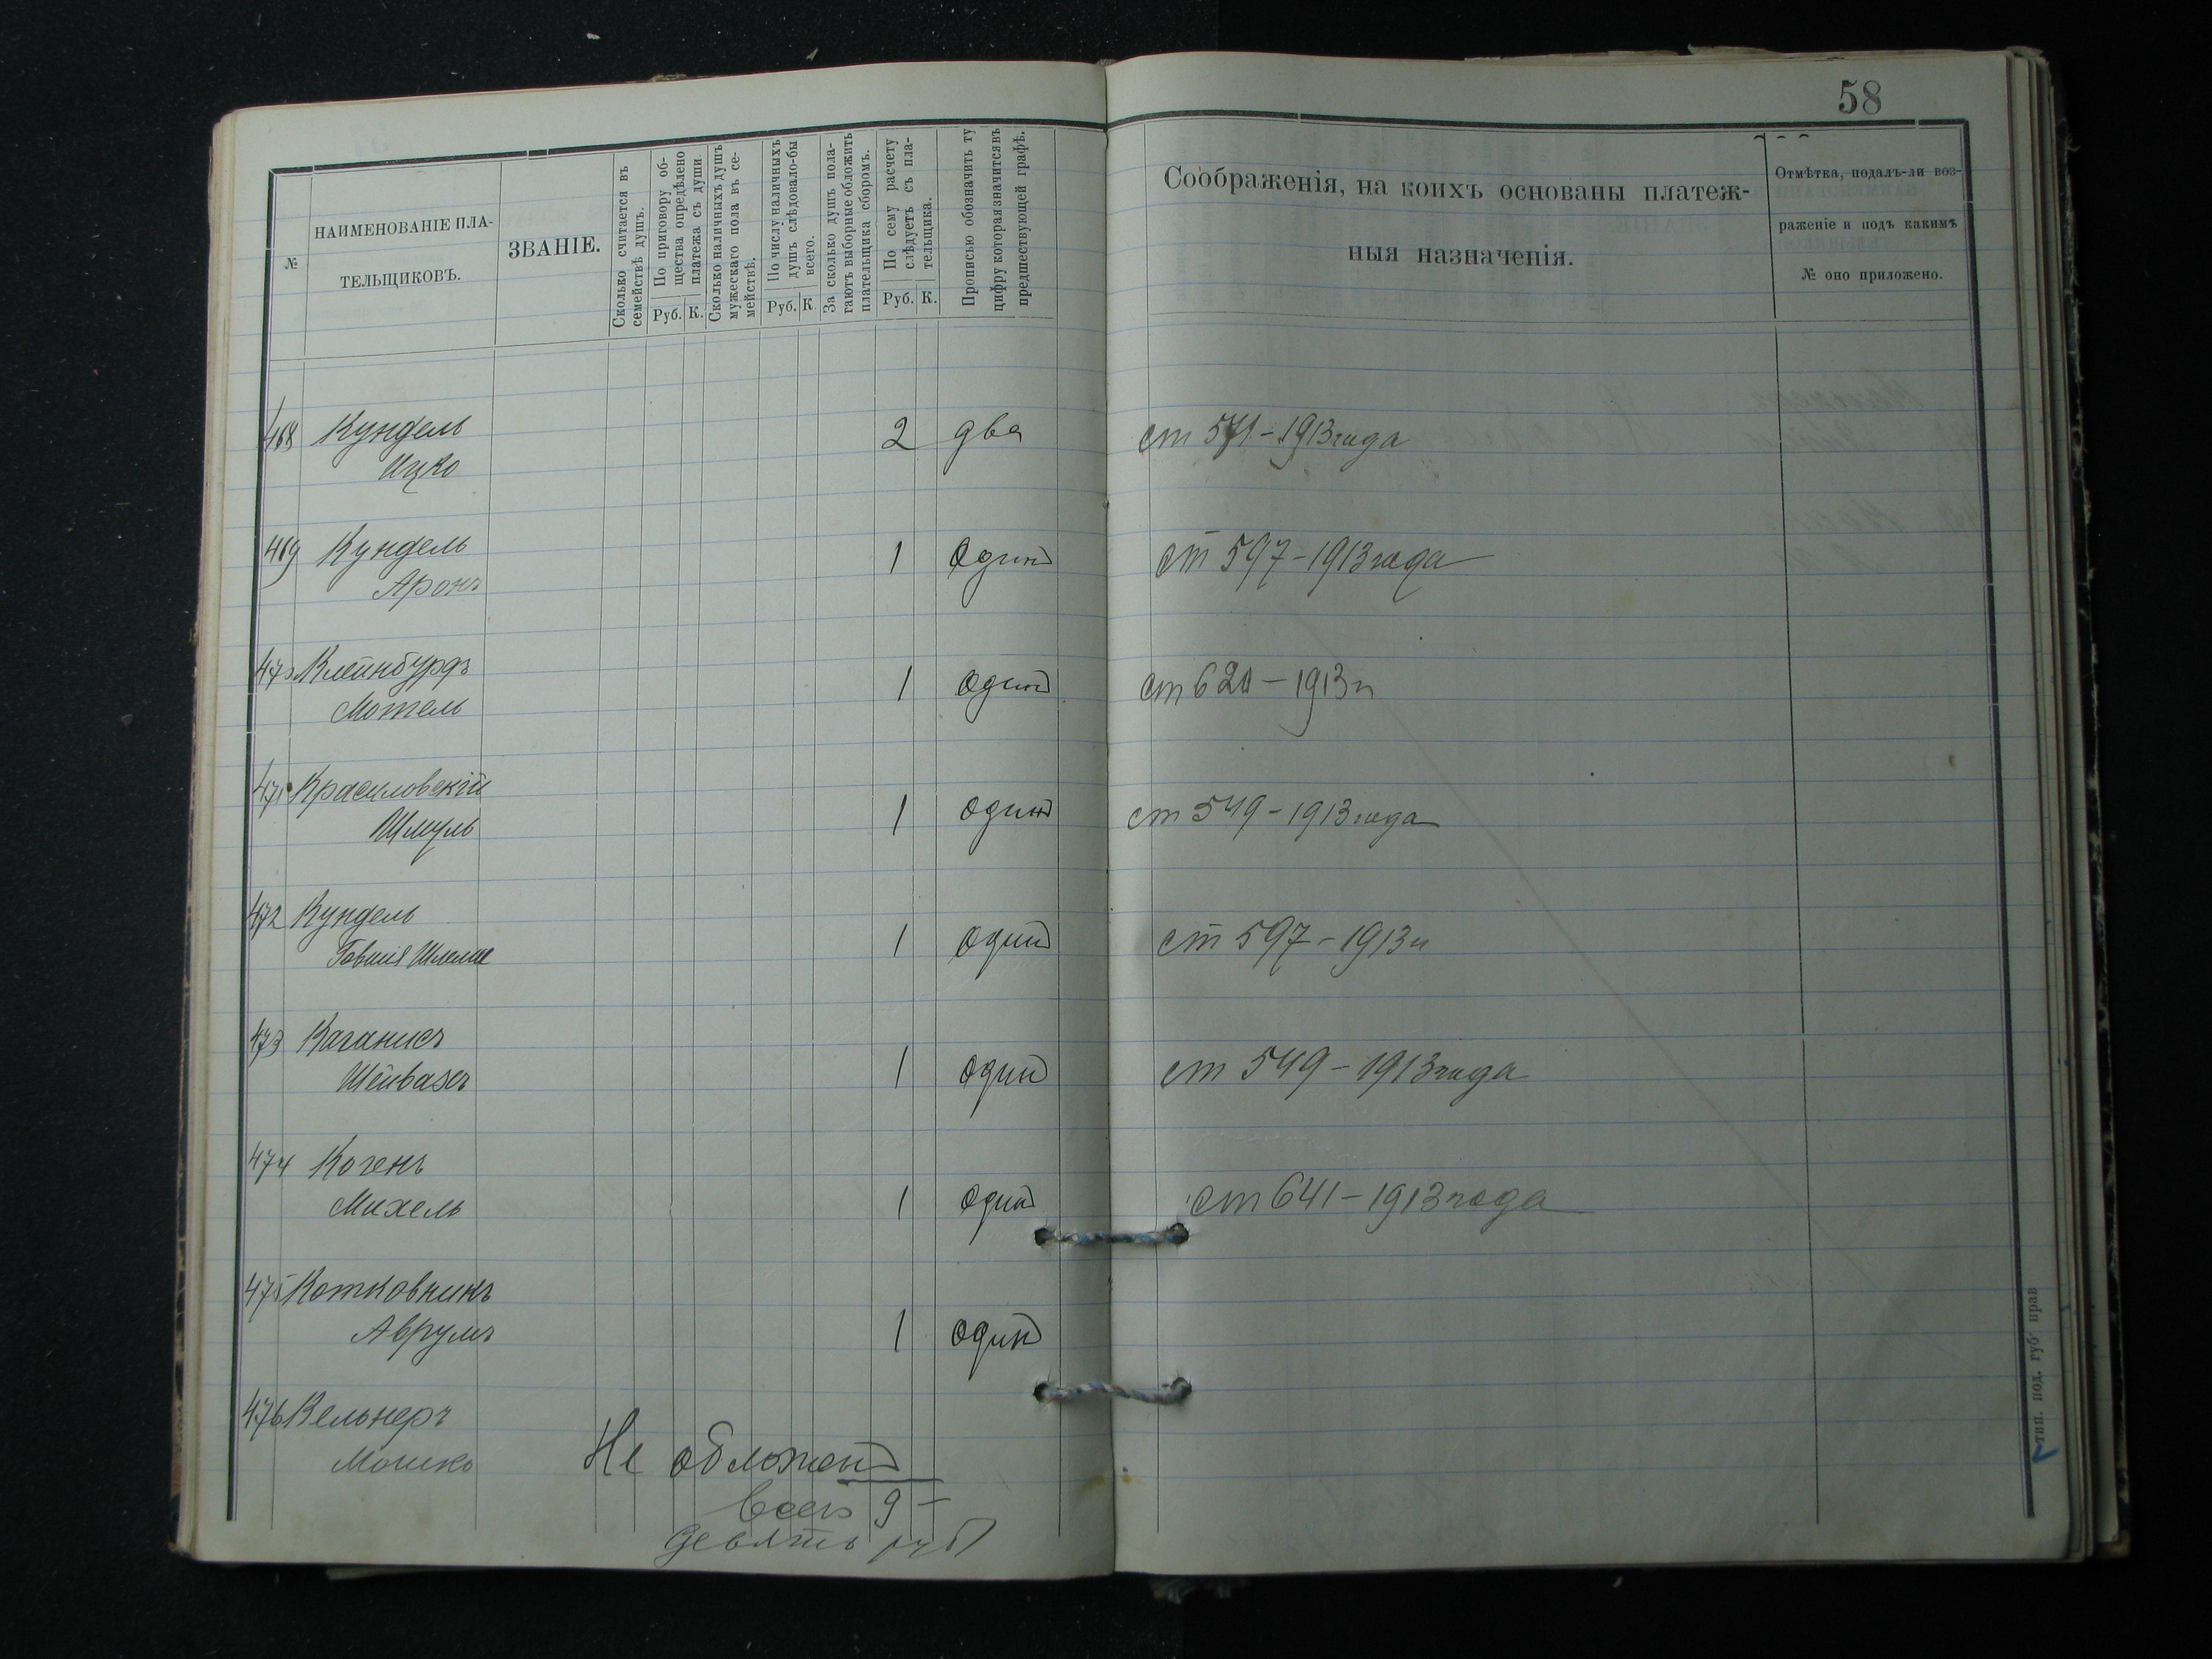 58
№
НАИМЕНОВАНІЕ ПЛА-
ТЕЛЬЩИКОВЪ.
ЗВАНІЕ.
Сколько считается въ
семействѣ душъ.
По приговору об-
щества опредѣлено
платежа съ души.
Руб. К.
Сколько наличныхъ душъ
мужескаго пола въ се-
мействѣ.
По числу наличныхъ
душъ слѣдовало-бы
всего.
Руб. К.
За сколько душъ пола-
гаютъ выборные обложить
плательщика сборомъ.
По сему расчету
слѣдуетъ съ пла-
тельщика.
Руб. К.
Прописью обозначить ту
цифру которая значится въ
предшествующей графѣ.
Соображенія, на коихъ основаны платеж-
ныя назначенія.
Отмѣтка, подалъ-ли воз-
раженіе и подъ какимъ
№ оно приложено.
468 Кундель 2 два ст 571-1913года
Ицко
469 Кундель 1 Один ст 597-1913года
Аронъ
470 Клейнбурдъ
Мотель 1 один ст 620-1913г
471 Красиловскій
Шмуль 1 один ст 549-1913года
472 Кундель
Шлема 1 один ст 597-1913г
473 Каганисъ
1 один ст 549-1913года
474 Когенъ
Михель 1 один ст 641-1913года
475 Котковникъ
Аврумъ 1 один
476 Кельнеръ
Мошко Не обложен
всего 9-
девять руб
тип. под. губ. прав